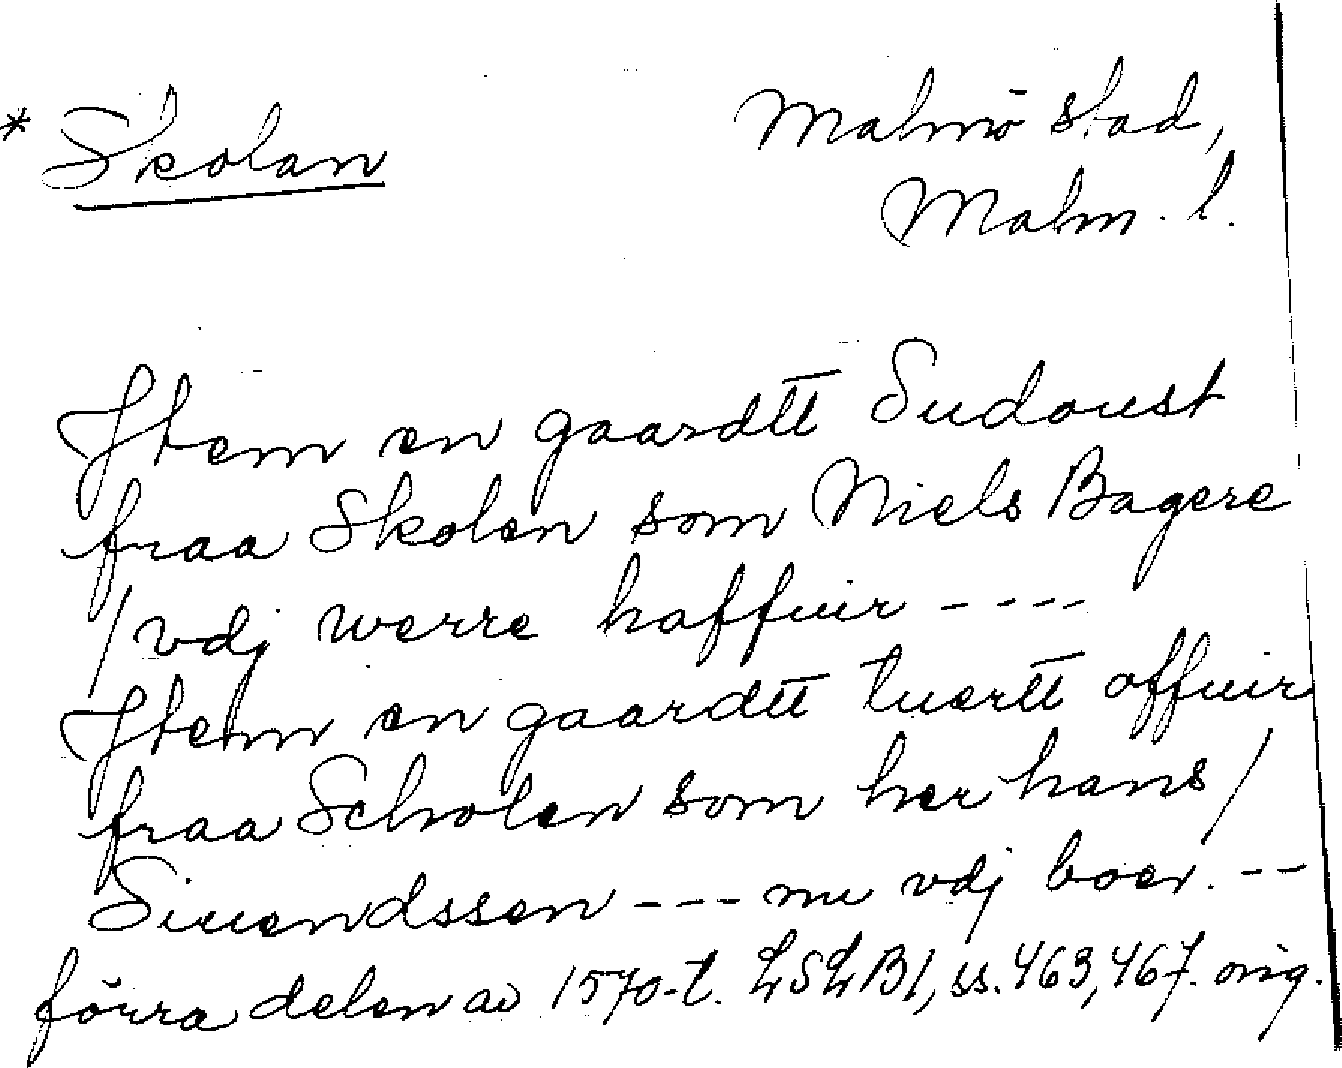 * Skolan
Malmö stad,
Malm. l.
Jtem en gaardtt Sudoust
fraa Skolen som Niels Bagere
/ vdj werre haffuir ----
Jtem en gaardtt tuertt offuir
fraa Scholen som her hans /
Siuendssen --- nu vdj boer. --
förra delen av 1570-t. LSLB1, ss. 463, 467. orig.